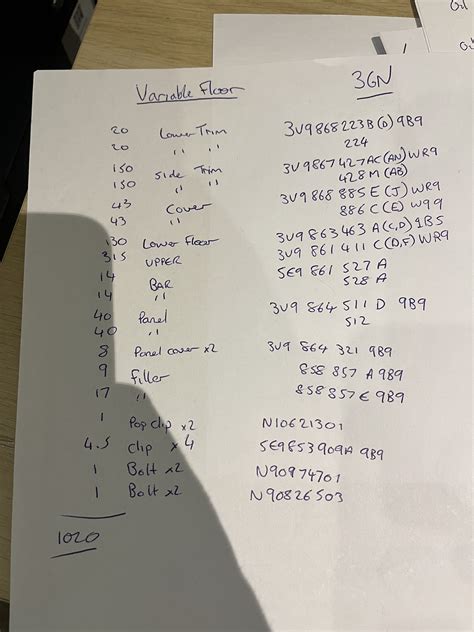 Oil
Variable Floor 3GN
20 Lower Trim 3V9868223B(D) 9B9
20 " " 224
150 side Trim 3V9867427AC(AN)WR9
150 " " 428M(AB)
43 Cover 3V9 868 885E(J)WR9
43 " 886C(E)W99
130 Lower Floor 3V9 863463 A(C,D)1BS
315 UPPER 3V9 861411 C(D,F)WR9
14 BAR 5E9 861 527 A
14 " 528 A
40 Panel 3V9 864 511 D 9B9
40 " 512
8 Panel cover x2 3V9 864 321 9B9
9 Filler 858 857 A 9B9
17 " 858857E 9B9
1 Pop clip x2 N10621301
4.5 clip x4 5E9853909A 9B9
1 Bolt x2 N90974701
1 Bolt x2 N90826503
1020